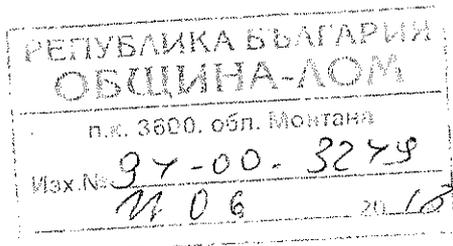 РЕПУБЛИКА БЪЛГАРИЯ
ОБЩИНА-ЛОМ
п.к. 3600, обл. Монтана
Изх.№ 94-00-3279
11 06 20 18